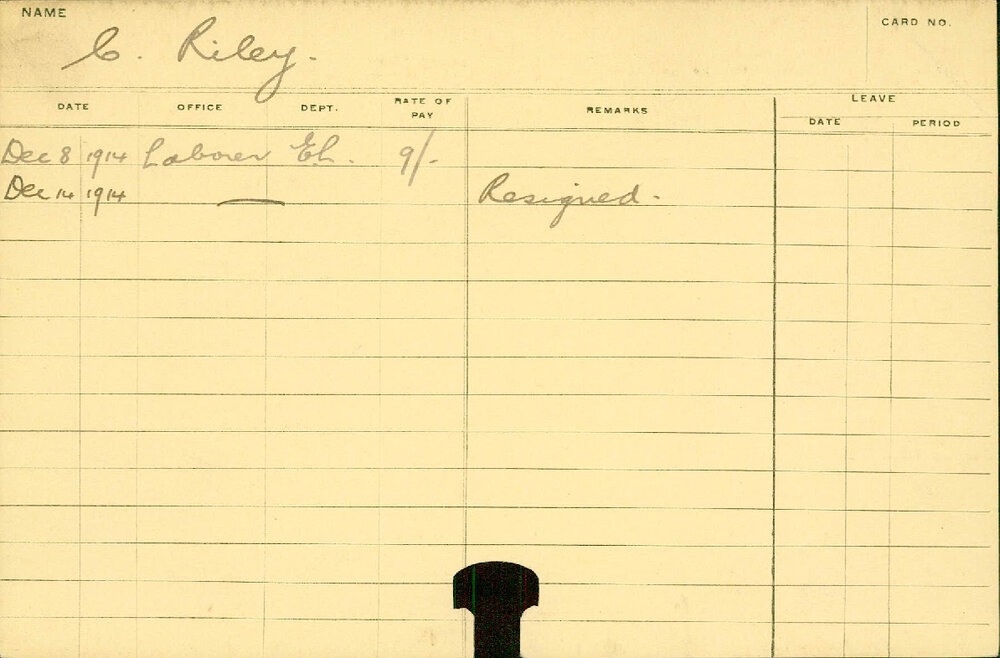 NAME
CARD NO.
C. Riley.
DATE OFFICE DEPT. RATE OF PAY REMARKS LEAVE
DATE PERIOD
Dec 8 1914 Laborer El. 9/-
Dec 14 1914 — Resigned.